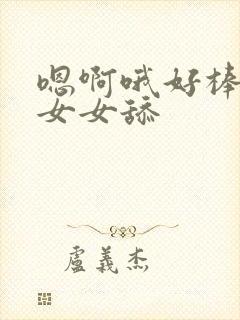 嗯啊哦好棒
女女舔
盧義杰